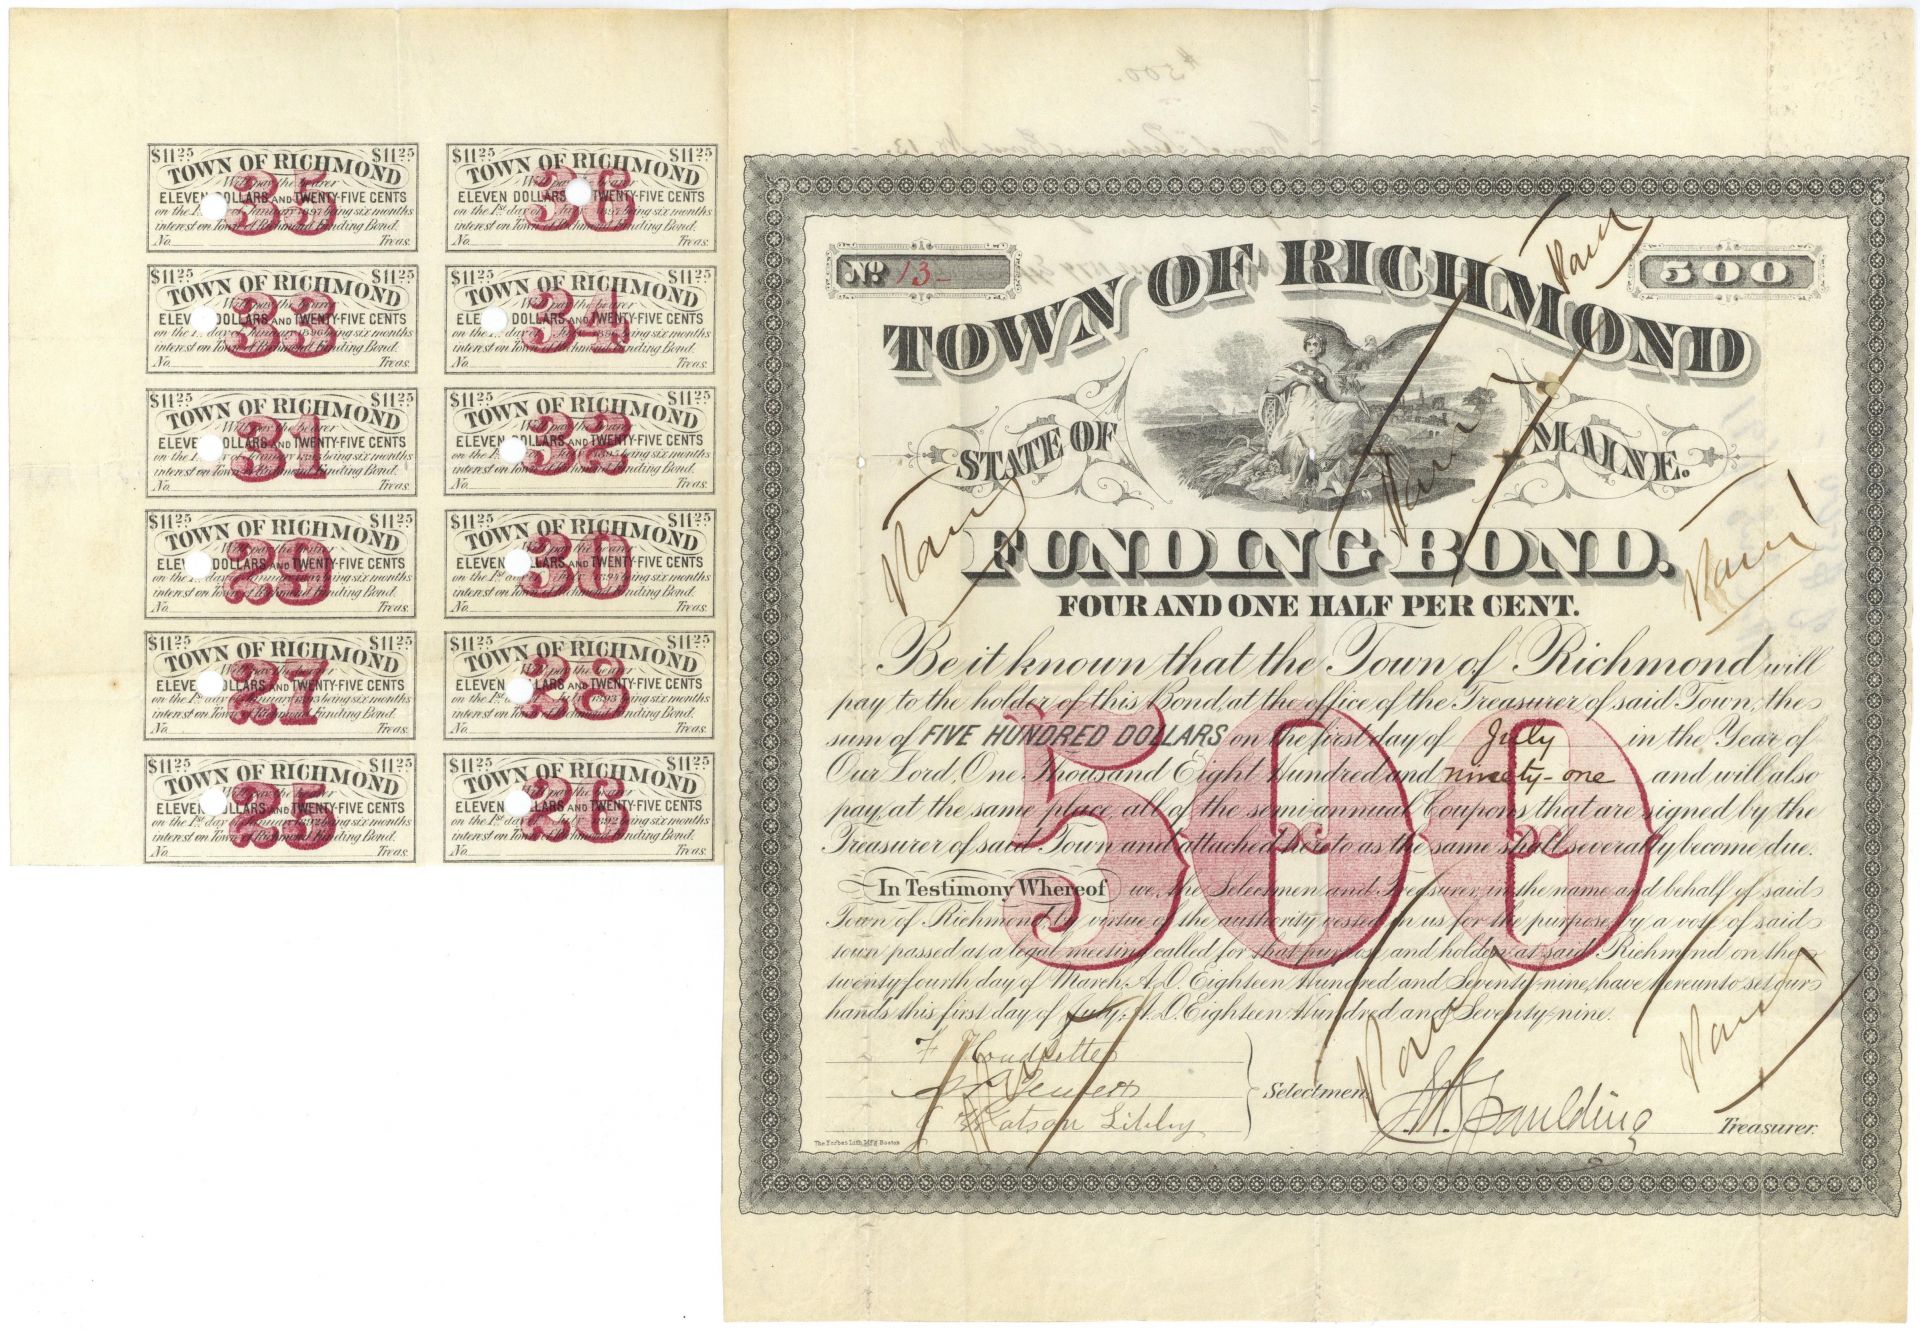 $11.25 $11.25
TOWN OF RICHMOND
Will pay the bearer
ELEVEN DOLLARS AND TWENTY-FIVE CENTS
on the 1st day of January 1897 being six months
interest on Town of Richmond Funding Bond.
No. Treas.
35
$11.25 $11.25
TOWN OF RICHMOND
Will pay the bearer
ELEVEN DOLLARS AND TWENTY-FIVE CENTS
on the 1st day of July 1897 being six months
interest on Town of Richmond Funding Bond.
No. Treas.
36
$11.25 $11.25
TOWN OF RICHMOND
Will pay the bearer
ELEVEN DOLLARS AND TWENTY-FIVE CENTS
on the 1st day of January 1896 being six months
interest on Town of Richmond Funding Bond.
No. Treas.
33
$11.25 $11.25
TOWN OF RICHMOND
Will pay the bearer
ELEVEN DOLLARS AND TWENTY-FIVE CENTS
on the 1st day of July 1896 being six months
interest on Town of Richmond Funding Bond.
No. Treas.
34
$11.25 $11.25
TOWN OF RICHMOND
Will pay the bearer
ELEVEN DOLLARS AND TWENTY-FIVE CENTS
on the 1st day of January 1895 being six months
interest on Town of Richmond Funding Bond.
No. Treas.
31
$11.25 $11.25
TOWN OF RICHMOND
Will pay the bearer
ELEVEN DOLLARS AND TWENTY-FIVE CENTS
on the 1st day of July 1895 being six months
interest on Town of Richmond Funding Bond.
No. Treas.
32
$11.25 $11.25
TOWN OF RICHMOND
Will pay the bearer
ELEVEN DOLLARS AND TWENTY-FIVE CENTS
on the 1st day of January 1894 being six months
interest on Town of Richmond Funding Bond.
No. Treas.
29
$11.25 $11.25
TOWN OF RICHMOND
Will pay the bearer
ELEVEN DOLLARS AND TWENTY-FIVE CENTS
on the 1st day of July 1894 being six months
interest on Town of Richmond Funding Bond.
No. Treas.
30
$11.25 $11.25
TOWN OF RICHMOND
Will pay the bearer
ELEVEN DOLLARS AND TWENTY-FIVE CENTS
on the 1st day of January 1893 being six months
interest on Town of Richmond Funding Bond.
No. Treas.
27
$11.25 $11.25
TOWN OF RICHMOND
Will pay the bearer
ELEVEN DOLLARS AND TWENTY-FIVE CENTS
on the 1st day of July 1893 being six months
interest on Town of Richmond Funding Bond.
No. Treas.
28
$11.25 $11.25
TOWN OF RICHMOND
Will pay the bearer
ELEVEN DOLLARS AND TWENTY-FIVE CENTS
on the 1st day of January 1892 being six months
interest on Town of Richmond Funding Bond.
No. Treas.
25
$11.25 $11.25
TOWN OF RICHMOND
Will pay the bearer
ELEVEN DOLLARS AND TWENTY-FIVE CENTS
on the 1st day of July 1892 being six months
interest on Town of Richmond Funding Bond.
No. Treas.
26
No 13
500
TOWN OF RICHMOND
STATE OF MAINE.
FUNDING BOND.
FOUR AND ONE HALF PER CENT.
Be it known that the Town of Richmond will
pay to the holder of this Bond, at the office of the Treasurer of said Town, the
sum of FIVE HUNDRED DOLLARS on the first day of July in the Year of
Our Lord, One Thousand Eight Hundred and ninety-one and will also
pay, at the same place, all of the semi-annual Coupons that are signed by the
Treasurer of said Town and attached hereto as the same shall severally become due.
In Testimony Whereof we, the Selectmen and Treasurer, in the name and behalf of said
Town of Richmond, by virtue of the authority vested in us for the purpose, by a vote of said
town passed at a legal meeting called for that purpose and holden at said Richmond on the
twenty fourth day of March, A.D. Eighteen Hundred and Seventy-nine, have hereunto set our
hands this first day of July, A.D. Eighteen Hundred and Seventy-nine.
500
Watson Libby
Selectmen.
Spaulding
Treasurer.
The Forbes Lith. Mfg. Boston